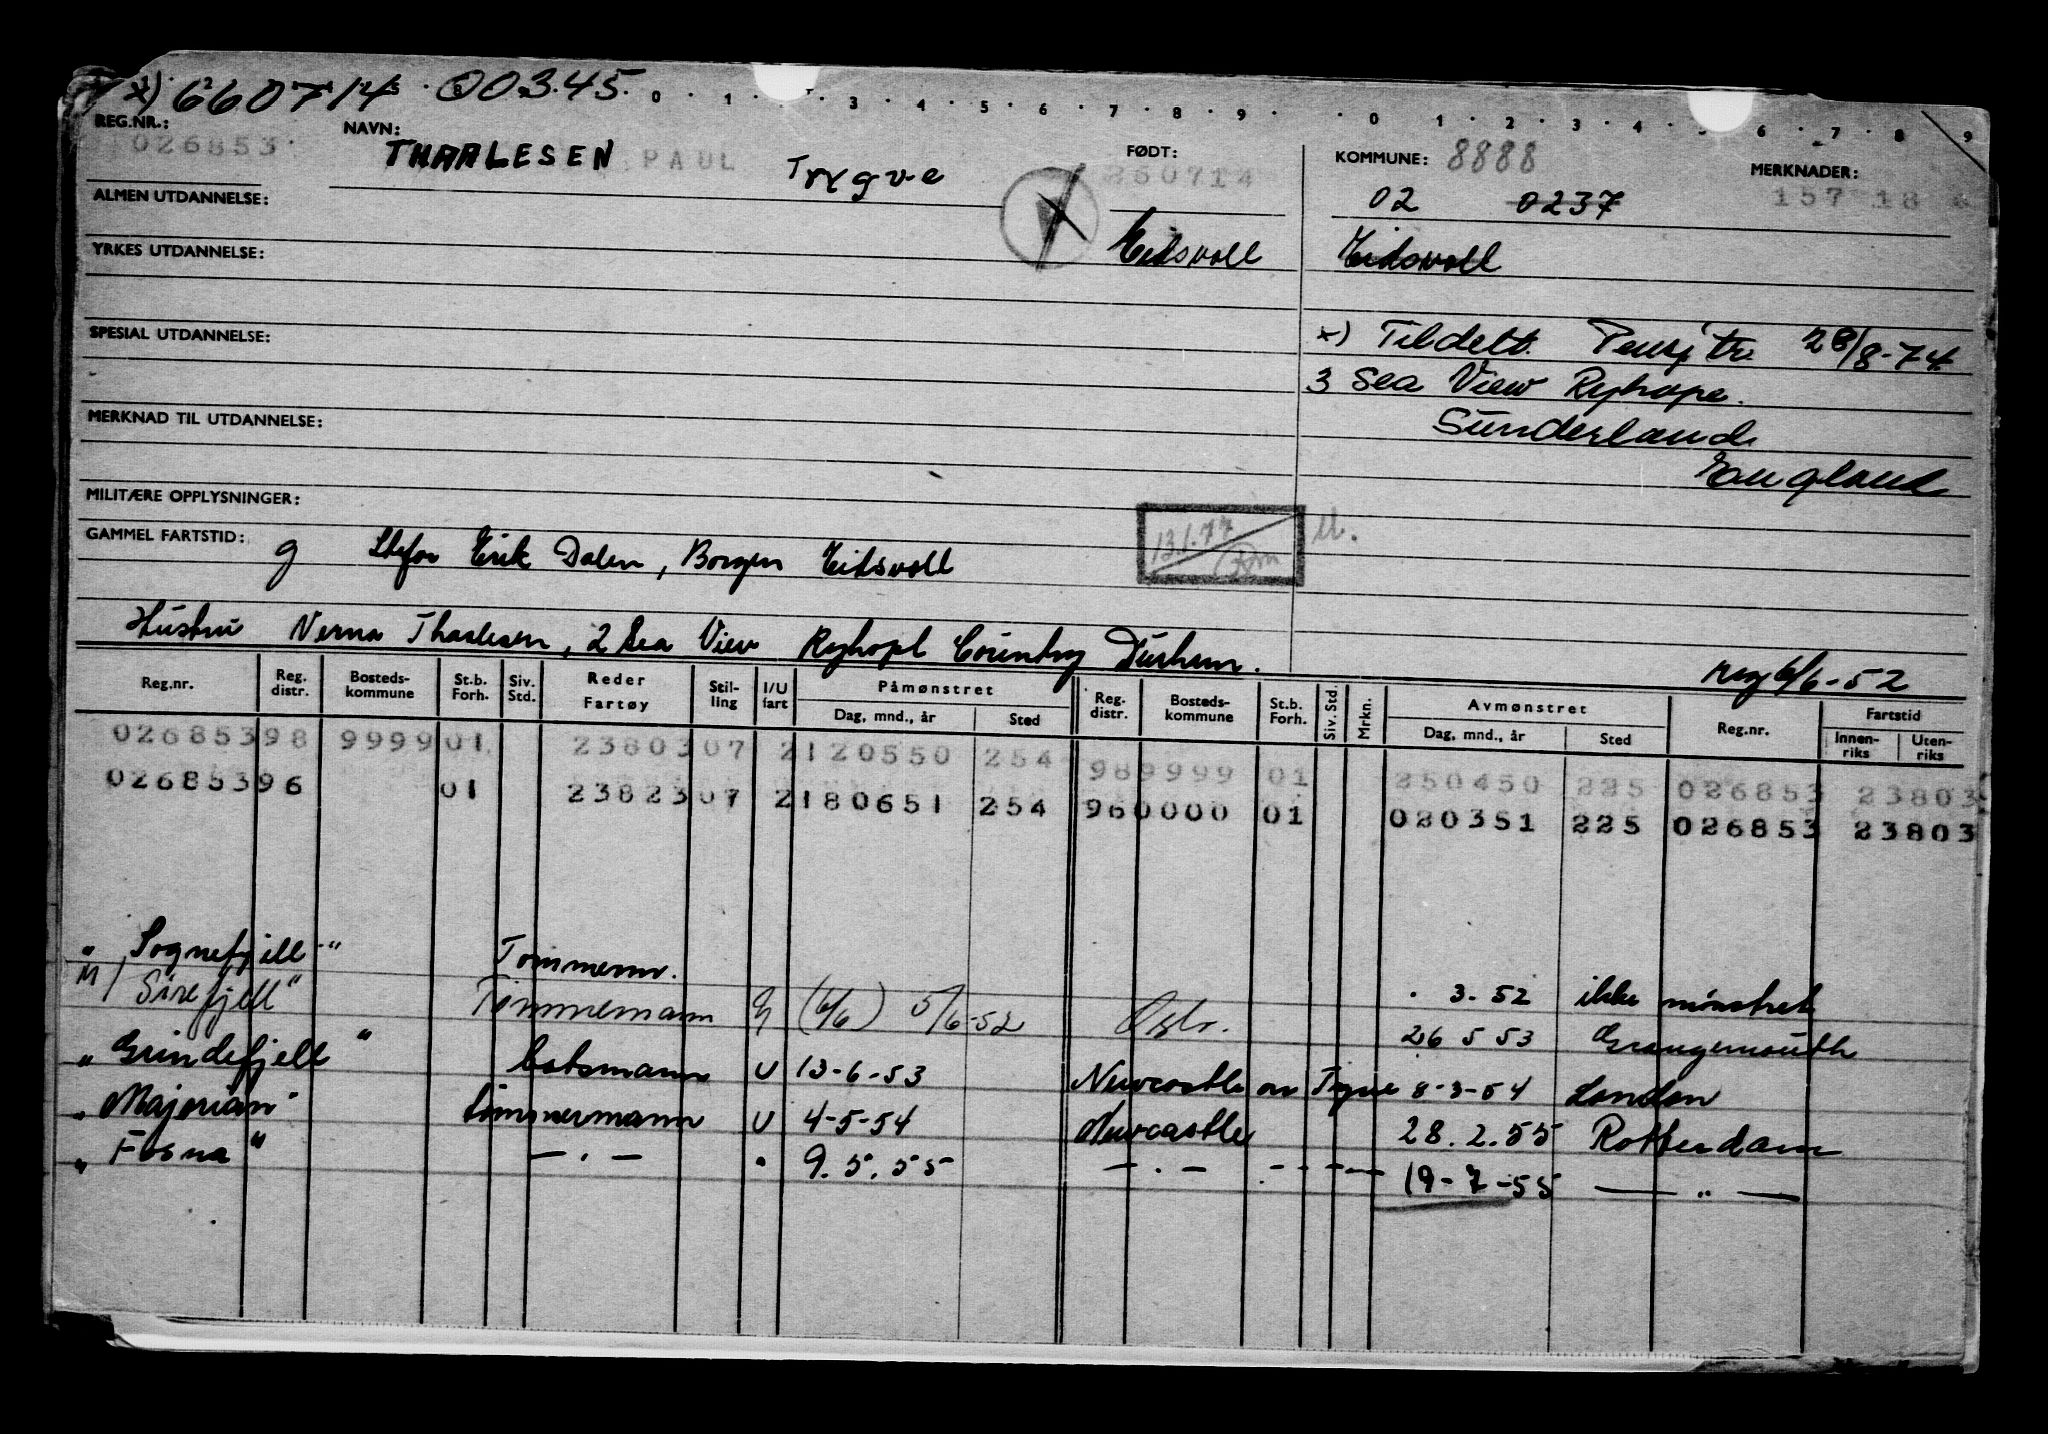 *) 660714 00345.
0 · 1 · · 3 · 4 · 5 · 6 · 7 · 8 · 9 · · 0 · 1 · 2 · 3 · 4 · 5 · 6 · 7 · 8 · 9
REG.NR.: NAVN: FØDT: KOMMUNE: 8888 MERKNADER:
026853 THAALESEN PAUL Trygve 260714 02 0237 157 18
ALMEN UTDANNELSE:
YRKES UTDANNELSE: Eidsvoll Eidsvoll
SPESIAL UTDANNELSE: *) Tildelt Pensjtr 28/8-74
3 Sea View Ryhope.
MERKNAD TIL UTDANNELSE: Sunderland
England
MILITÆRE OPPLYSNINGER:
GAMMEL FARTSTID: g Stefar Erik Dalen, Borgen Eidsvoll 13.1.77
Hustru Verna Thaalesen, 2 Sea View Ryhopl Country Durham.
reg 6/6-52
Reg.nr. Reg. distr. Bosteds-kommune St.b. Forh. Siv. Std. Reder Fartøy Stil-ling I/U fart Påmønstret Dag, mnd., år Sted Reg. distr. Bosteds-kommune St.b. Forh. Siv. Std. Mrkn. Avmønstret Dag, mnd., år Sted Reg.nr. Fartstid Innen-riks Uten-riks
02685398 9999 01 2380307 2120550 254 989999 01 250450 225 026853 23803
02685396 01 2382307 2180651 254 960000 01 020351 225 026853 23803
" Sognefjell " Tømmerm. . 3.52 ikke mønstret
M/ Sirefjell " Tømmermann U (6/6) 5/6-52 Oslo. 26 5 53 Grangemouth
" Grindefjell " batsmann U 13-6-53 Newcastle on Tyne 8-3-54 London
" Majorian " tømmermann U 4-5-54 Newcastle 28.2.55 Rotterdam
" Fosna " — . — " 9.5.55 — . — - - - — 19-7-55 — " —